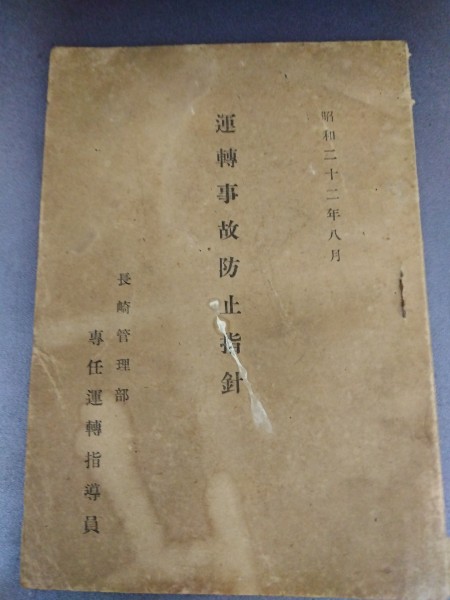 昭和二十二年八月
運轉事故防止指針
長崎管理部
專任運轉指導員